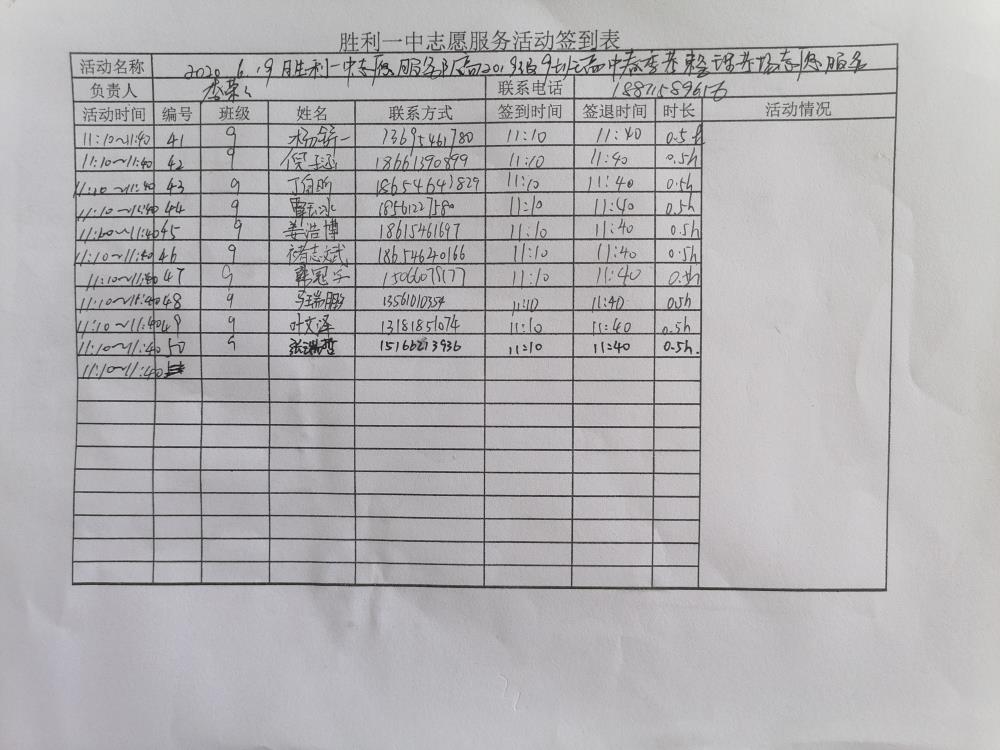 胜利一中志愿服务活动签到表
活动名称 2020.6.19月胜利一中志愿服务队高2019级9班 志愿服务
负责人 李荣 联系电话
活动时间 编号 班级 姓名 联系方式 签到时间 签退时间 时长 活动情况
11:10~11:40 41 9 杨舒一 13695461780 11:10 11:40 0.5h
11:10~11:40 42 9 倪子涵 18661390899 11:10 11:40 0.5h
11:10~11:40 43 9 丁伯昕 18654643829 11:10 11:40 0.5h
11:10~11:40 44 9 18561227580 11:10 11:40 0.5h
11:10~11:40 45 9 姜浩博 18615461697 11:10 11:40 0.5h
11:10~11:40 46 9 褚志斌 18654640166 11:10 11:40 0.5h
11:10~11:40 47 9 韩冠宇 11:10 11:40 0.5h
11:10~11:40 48 9 马瑞鹏 13561010354 11:10 11:40 0.5h
11:10~11:40 49 9 叶文泽 13181851074 11:10 11:40 0.5h
11:10~11:40 50 9 张瑞哲 15166213936 11:10 11:40 0.5h.
11:10~11:40